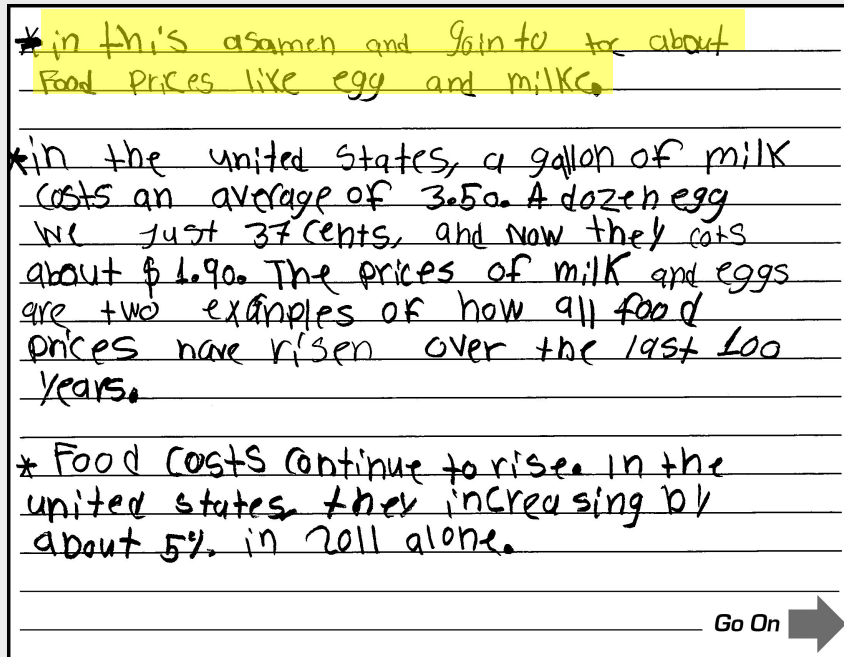 * in this asamen and gointo toc about
Food Prices like egg and milke.
*in the united states, a gallon of milk
costs an average of 3.50. A dozen egg
we just 37 cents, and now they cots
about $ 1.90. The prices of milk and eggs
are two exanples of how all food
prices have risen over the last 100
years.
* Food costs continue to rise. in the
united states they increasing by
about 5% in 2011 alone.
Go On